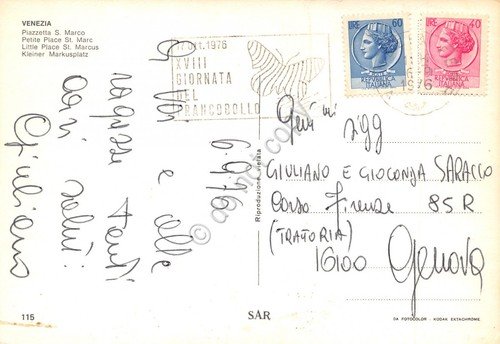 VENEZIA
Piazzetta S. Marco
Petite Place St. Marc
Little Place St. Marcus
Kleiner Markusplatz
17 Ott. 1976
XVIII
GIORNATA
DEL
FRANCOBOLLO
LIRE 60
REPUBBLICA
ITALIANA
LIRE 40
REPUBBLICA
ITALIANA
1976
6.9.76
A voi e alle
ragazze tanti
cari saluti.
Giuliano
Gen mi Sigg
GIULIANO E GIOCONDA SARACCO
Corso Firenze 85R
(TRATORIA)
16100 Genova
Riproduzione vietata
115
SAR
DA FOTOCOLOR - KODAK EKTACHROME